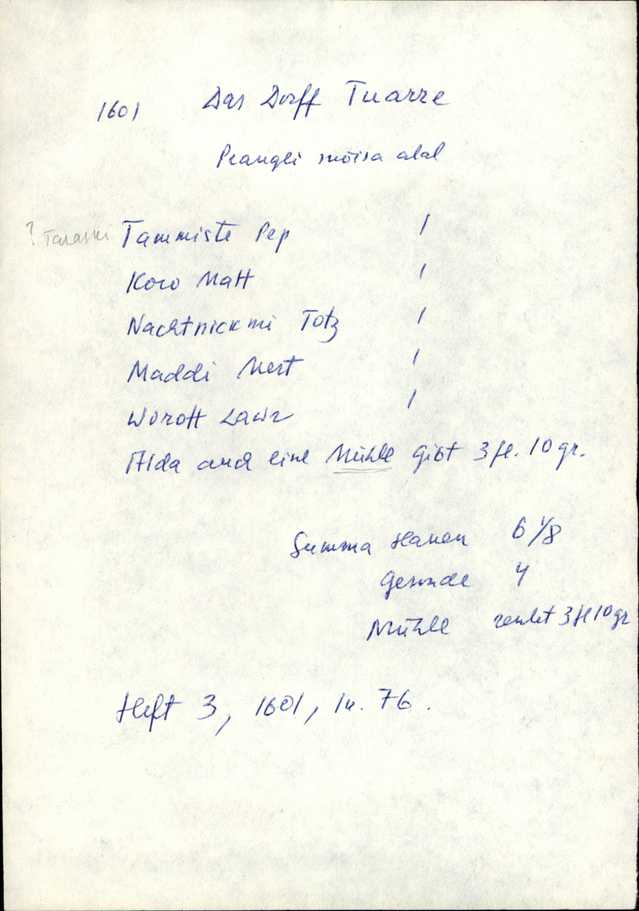 1601 Das Dorff Tuarre
Prangli mõisa alal
? Tammiste Pep 1
Koro Matt 1
Nachtnickmi Totz 1
Maddi Mert 1
Worott Lawr 1
Alda auch eine Mühle gibt 3 fl. 10 gr.
Summa Haken 6 1/8
Gesinde 4
Mühle 3 fl 10 gr
Heft 3, 1601, lk. 76.